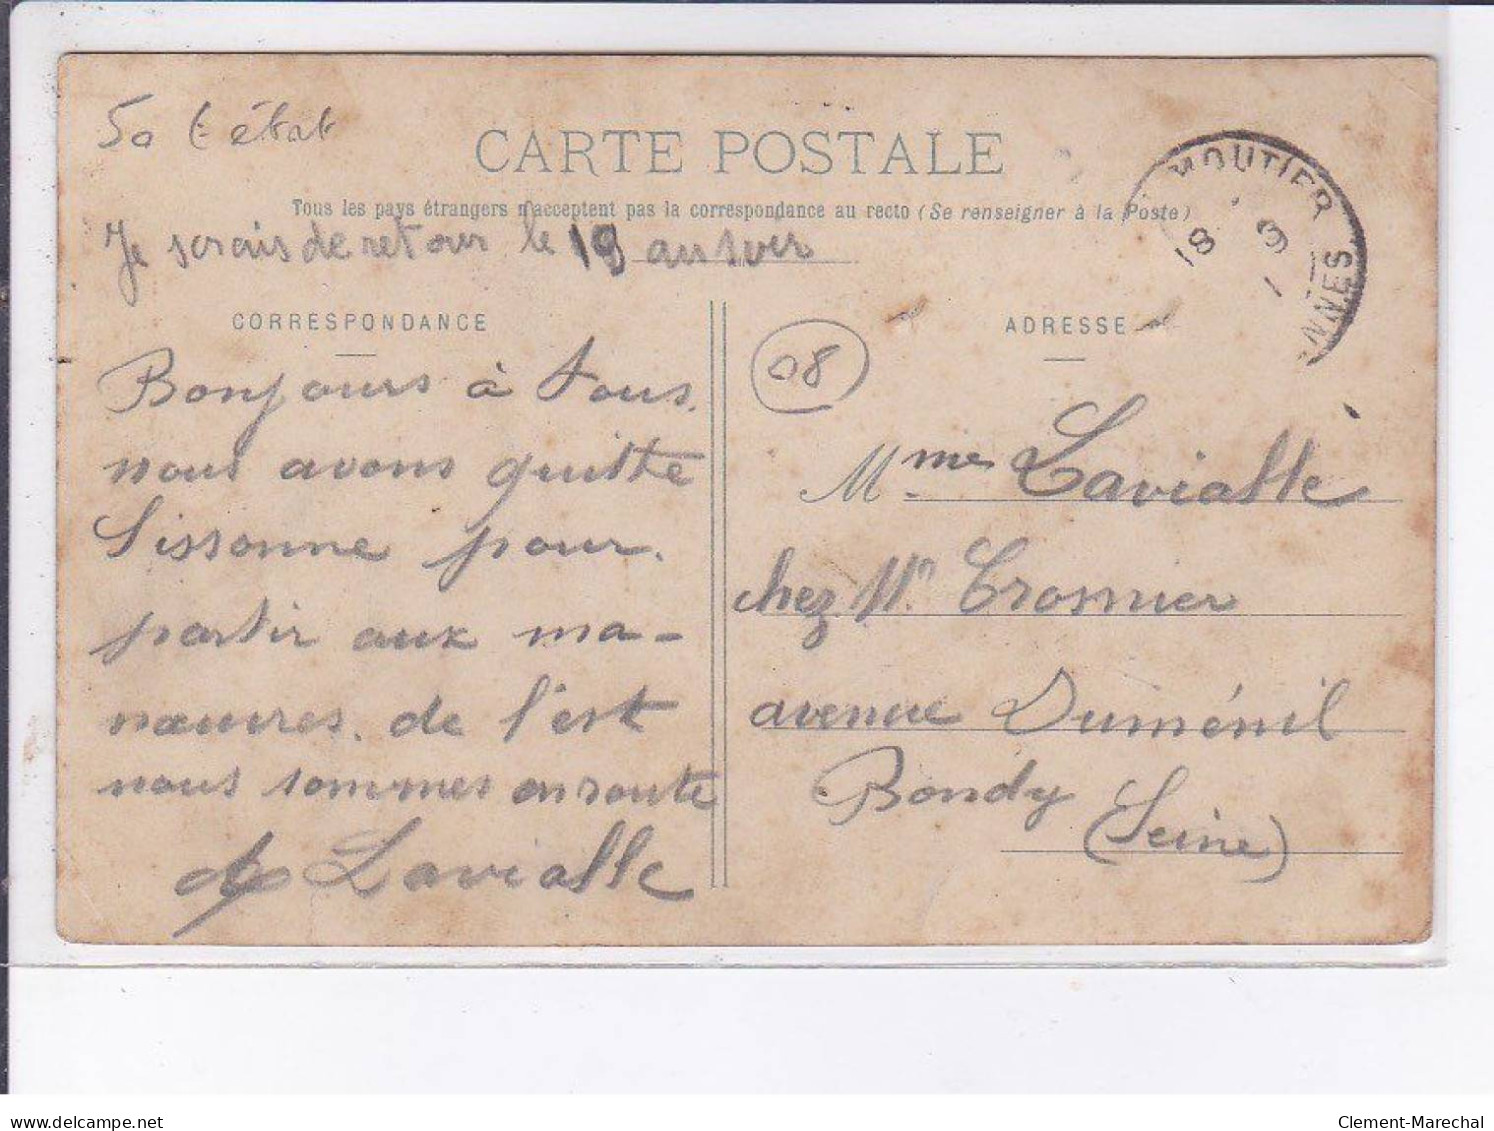 50 t état
CARTE POSTALE
Tous les pays étrangers n'acceptent pas la correspondance au recto (Se renseigner à la Poste)
Je serais de retour le 19 au soir
MOUTIER
18 9
NNES
CORRESPONDANCE
ADRESSE
08
Bonjours à tous.
nous avons quitte
Sissonne pour.
partir aux ma-
nœuvres. de l'est
nous sommes en route
Lavialle
Mme Lavialle
chez Mr Crosnier
avenue Duménil
Bondy
(Seine)
delcampe.net
Clement-Marechal